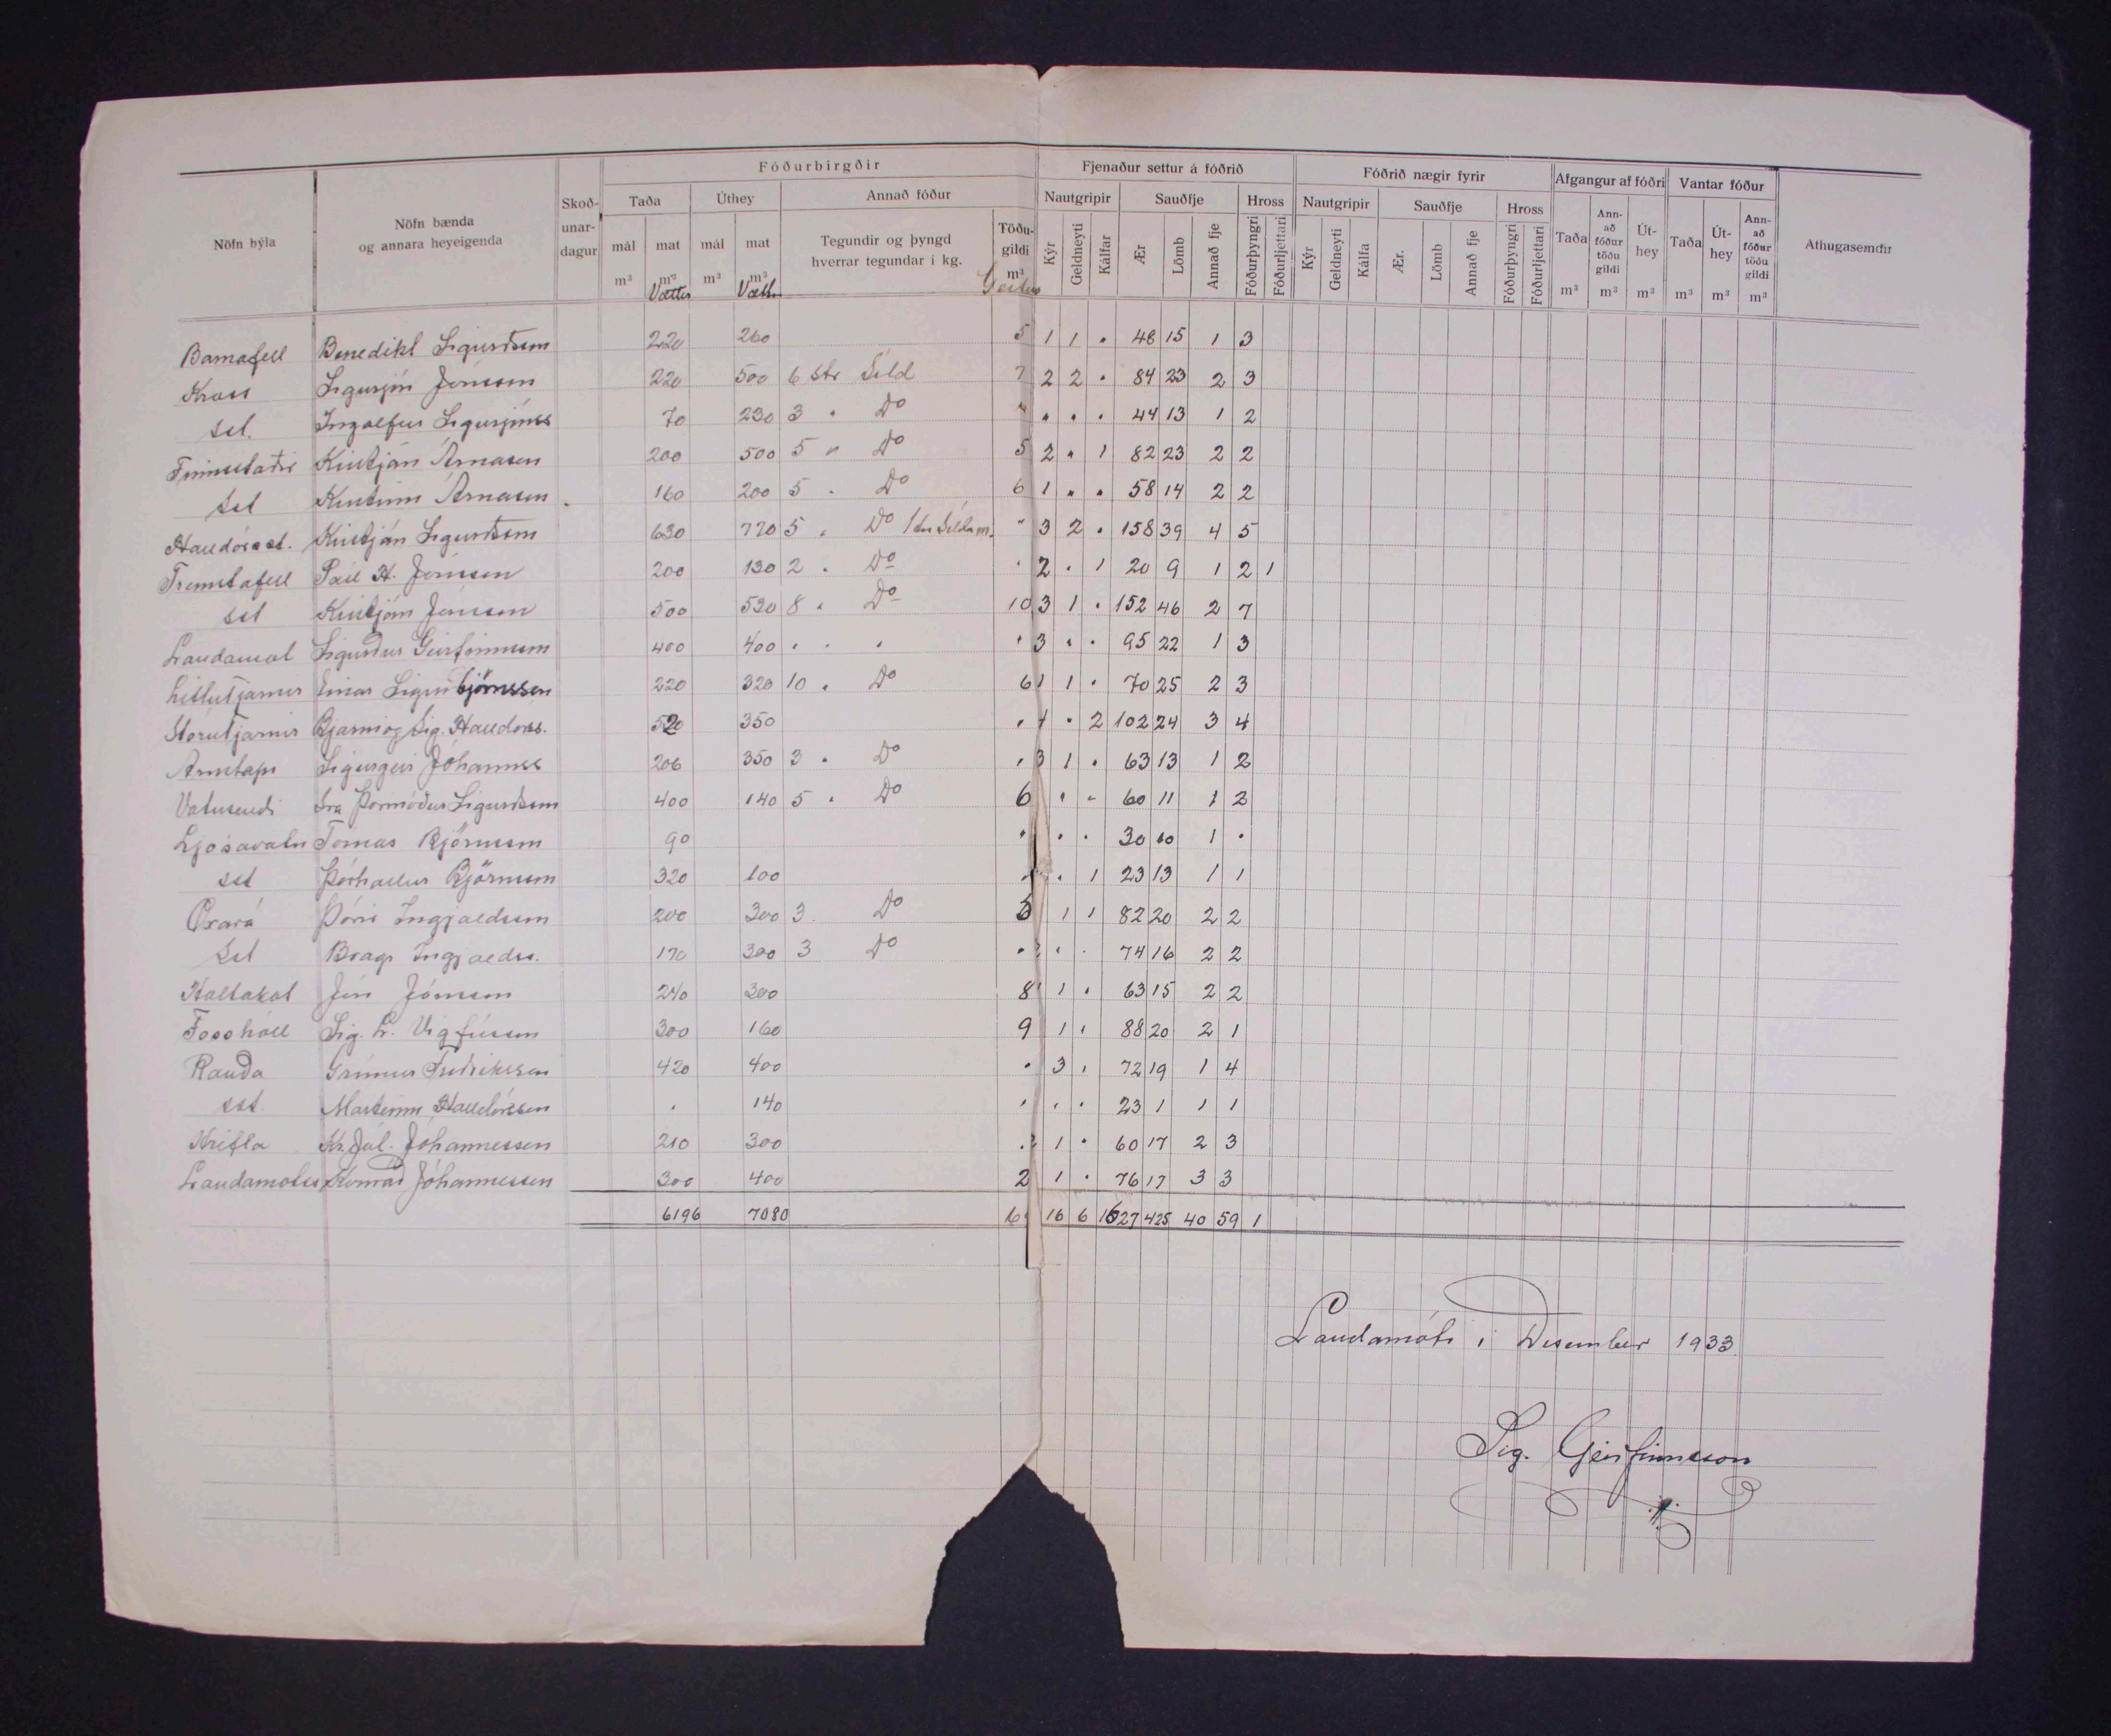 Fóðurbirgðir Fjenaður settur á fóðrið Fóðrið nægir fyrir Afgangur af fóðri Vantar fóður
Nöfn býla Nöfn bænda og annara heyeigenda Skoð-unar-dagur Taða Úthey Annað fóður Nautgripir Sauðfje Hross Nautgripir Sauðfje Hross Taða Ann-að fóður töðu gildi Út-hey Taða Út-hey Ann-að fóður töðu gildi Athugasemdir
mál mat mál mat Tegundir og þyngd hverrar tegundar í kg. Töðu-gildi Kýr Geldneyti Kálfar Ær Lömb Annað fje Fóðurþyngri Fóðurljettari Kýr Geldneyti Kálfa Ær. Lömb Annað fje Fóðurþyngri Fóðurljettari
m³ m³ m³ m³ m³ m³ m³ m³ m³ m³ m³
Vættir Vættir Geitur
Barnafell Benedikt Sigurðsson 220 260 5 1 1 . 48 15 1 3
Kross Sigurjón Jónsson 220 500 6 str Síld 7 2 2 . 84 23 2 3
sst. Ingólfur Sigurjónss 70 230 3 " Do " " . . 44 13 1 2
Finnsstaðir Kristján Árnason 200 500 5 " Do 5 2 " 1 82 23 2 2
sst Kristinn Árnason 160 200 5 . Do 6 1 " " 58 14 2 2
Halldórsst. Kristján Sigurðsson 630 770 5 " Do " 3 2 . 158 39 4 5
Fremstafell Páll H. Jónsson 200 130 2 . Do . 2 . 1 20 9 1 2 1
sst Kristján Jónsson 500 530 8 . Do 10 3 1 . 152 46 2 7
Landamót Sigurður Geirfinnsson 400 400 . . . . 3 . . 95 22 1 3
Litlutjarnir Einar Sigurbjörnsson 220 320 10 . Do 6 1 1 . 70 25 2 3
Stórutjarnir Bjarni og Sig. Halldórss. 520 350 . . 2 102 24 3 4
Arnstapi Sigurgeir Jóhannss 206 350 3 . Do . 3 1 . 63 13 1 2
Vatnsendi Sra Þormóður Sigurðsson 400 140 5 . Do 6 . - 60 11 1 2
Ljósavatn Tómas Björnsson 90 . . . 30 10 1 .
sst Þórhallur Björnsson 320 100 . 1 23 13 1 1
Öxará Þórir Ingjaldsson 200 300 3. Do 1 1 82 20 2 2
sst Bragi Ingjaldss. 170 300 3 Do . . . 74 16 2 2
Kaltakot Jón Jónsson 240 300 8 1 . 63 15 2 2
Fosshóll Sig. L. Vigfússon 300 160 9 1 . 88 20 2 1
Rauðá Grímur Friðriksson 420 400 . 3 . 72 19 1 4
sst Marteinn Halldórsson . 140 . . . 23 1 1 1
Hrifla Kr. Júl. Jóhannesson 210 300 . 1 . 60 17 2 3
Landamótss Konráð Jóhannesson 300 400 2 1 . 76 17 3 3
6196 7080 16 6 1627 425 40 59 1
Landamóti í Desember 1933.
Sig. Geirfinnsson